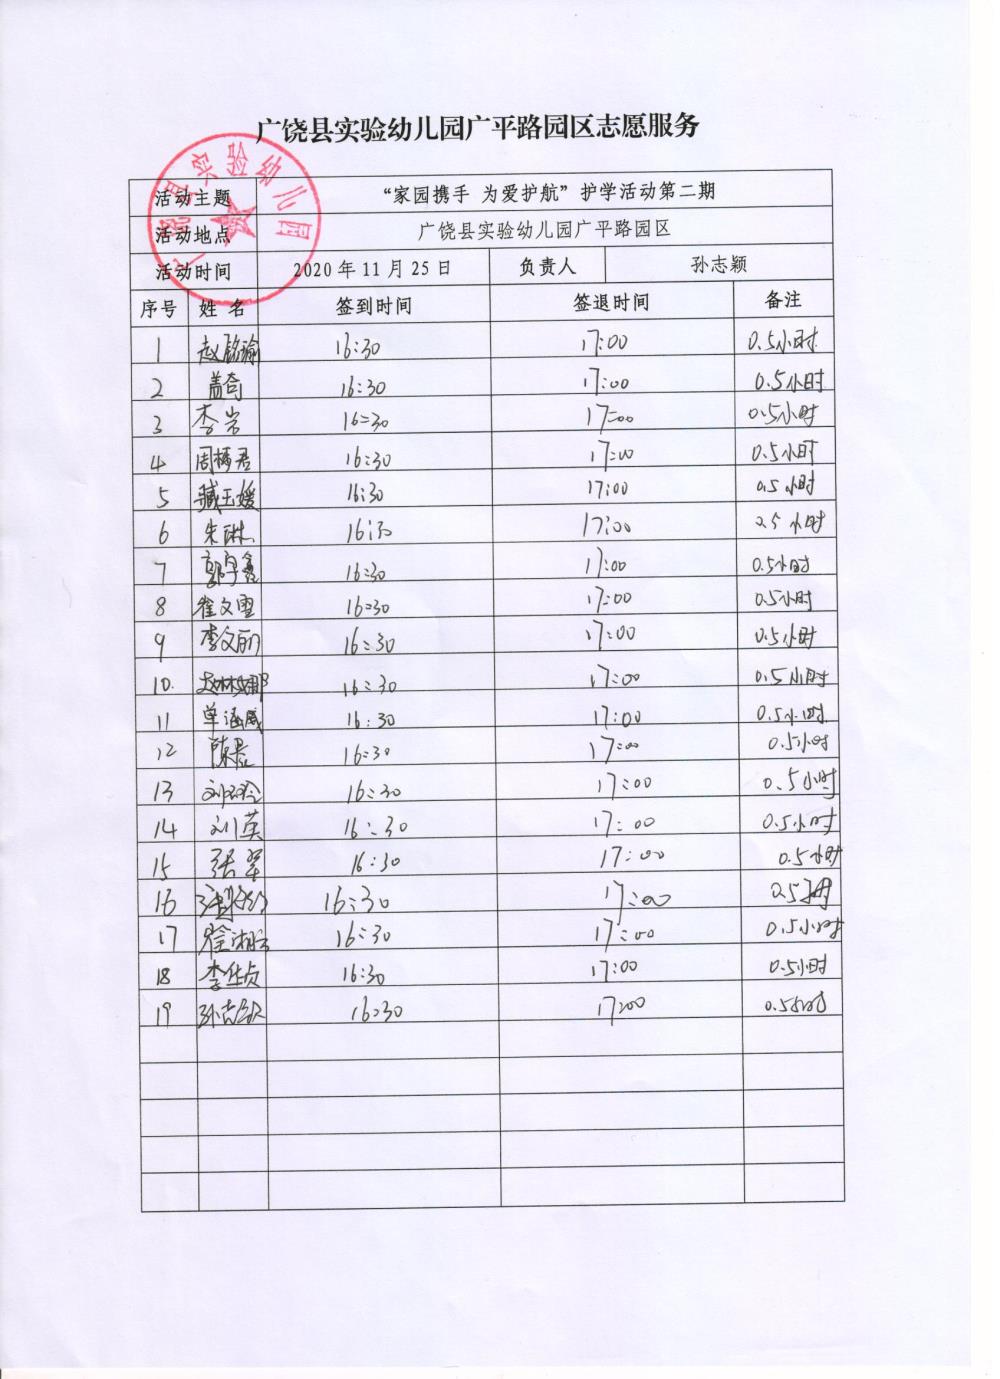 广饶县实验幼儿园广平路园区志愿服务
活动主题 “家园携手 为爱护航”护学活动第二期
活动地点 广饶县实验幼儿园广平路园区
活动时间 2020年11月25日 负责人 孙志颖
序号 姓名 签到时间 签退时间 备注
1 赵铭瑜 16:30 17:00 0.5小时
2 盖奇 16:30 17:00 0.5小时
3 李岩 16:30 17:00 0.5小时
4 16:30 17:00 0.5小时
5 臧玉媛 16:30 17:00 0.5小时
6 朱琳 16:30 17:00 0.5小时
7 16:30 17:00 0.5小时
8 崔文雪 16:30 17:00 0.5小时
9 李文丽 16:30 17:00 0.5小时
10. 赵林娜 16:30 17:00 0.5小时
11 单涵威 16:30 17:00 0.5小时
12 16:30 17:00 0.5小时
13 16:30 17:00 0.5小时
14 刘英 16:30 17:00 0.5小时
15 张翠 16:30 17:00 0.5小时
16 16:30 17:00 0.5小时
17 16:30 17:00 0.5小时
18 李华贞 16:30 17:00 0.5小时
19 16:30 17:00 0.5小时